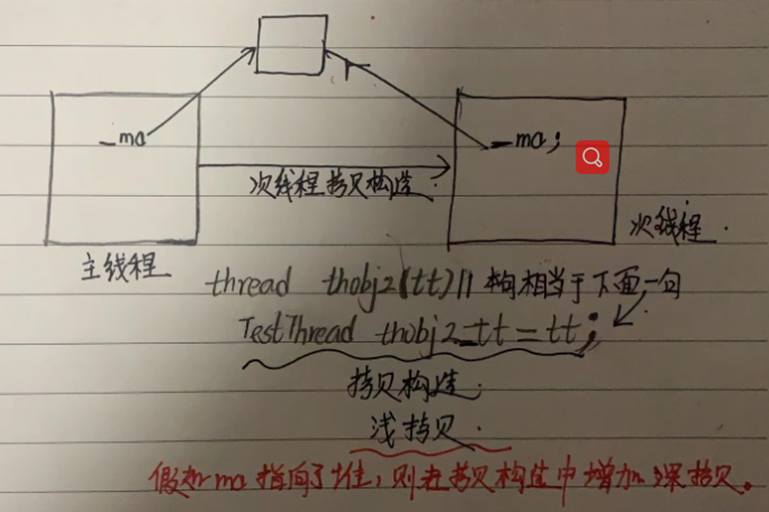 _ma
_ma;
次线程拷贝构造.
次线程.
主线程
thread thobj2(tt)// 相当于下面一句
TestThread thobj2_tt = tt;
拷贝构造.
浅拷贝.
假如ma指向了堆,则在拷贝构造中增加深拷贝。